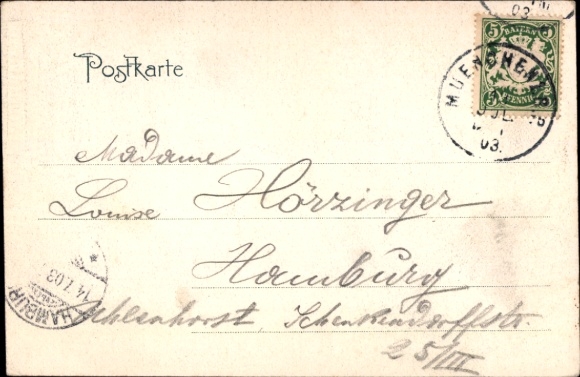 03.
5 BAYERN 5
5 PFENNIG
MUENCHEN
JUL
03.
Postkarte
Madame
Louise Hörzinger
Hamburg
Uhlenhorst, Schenkendorffstr.
25/III
HAMBURG
14.7.03